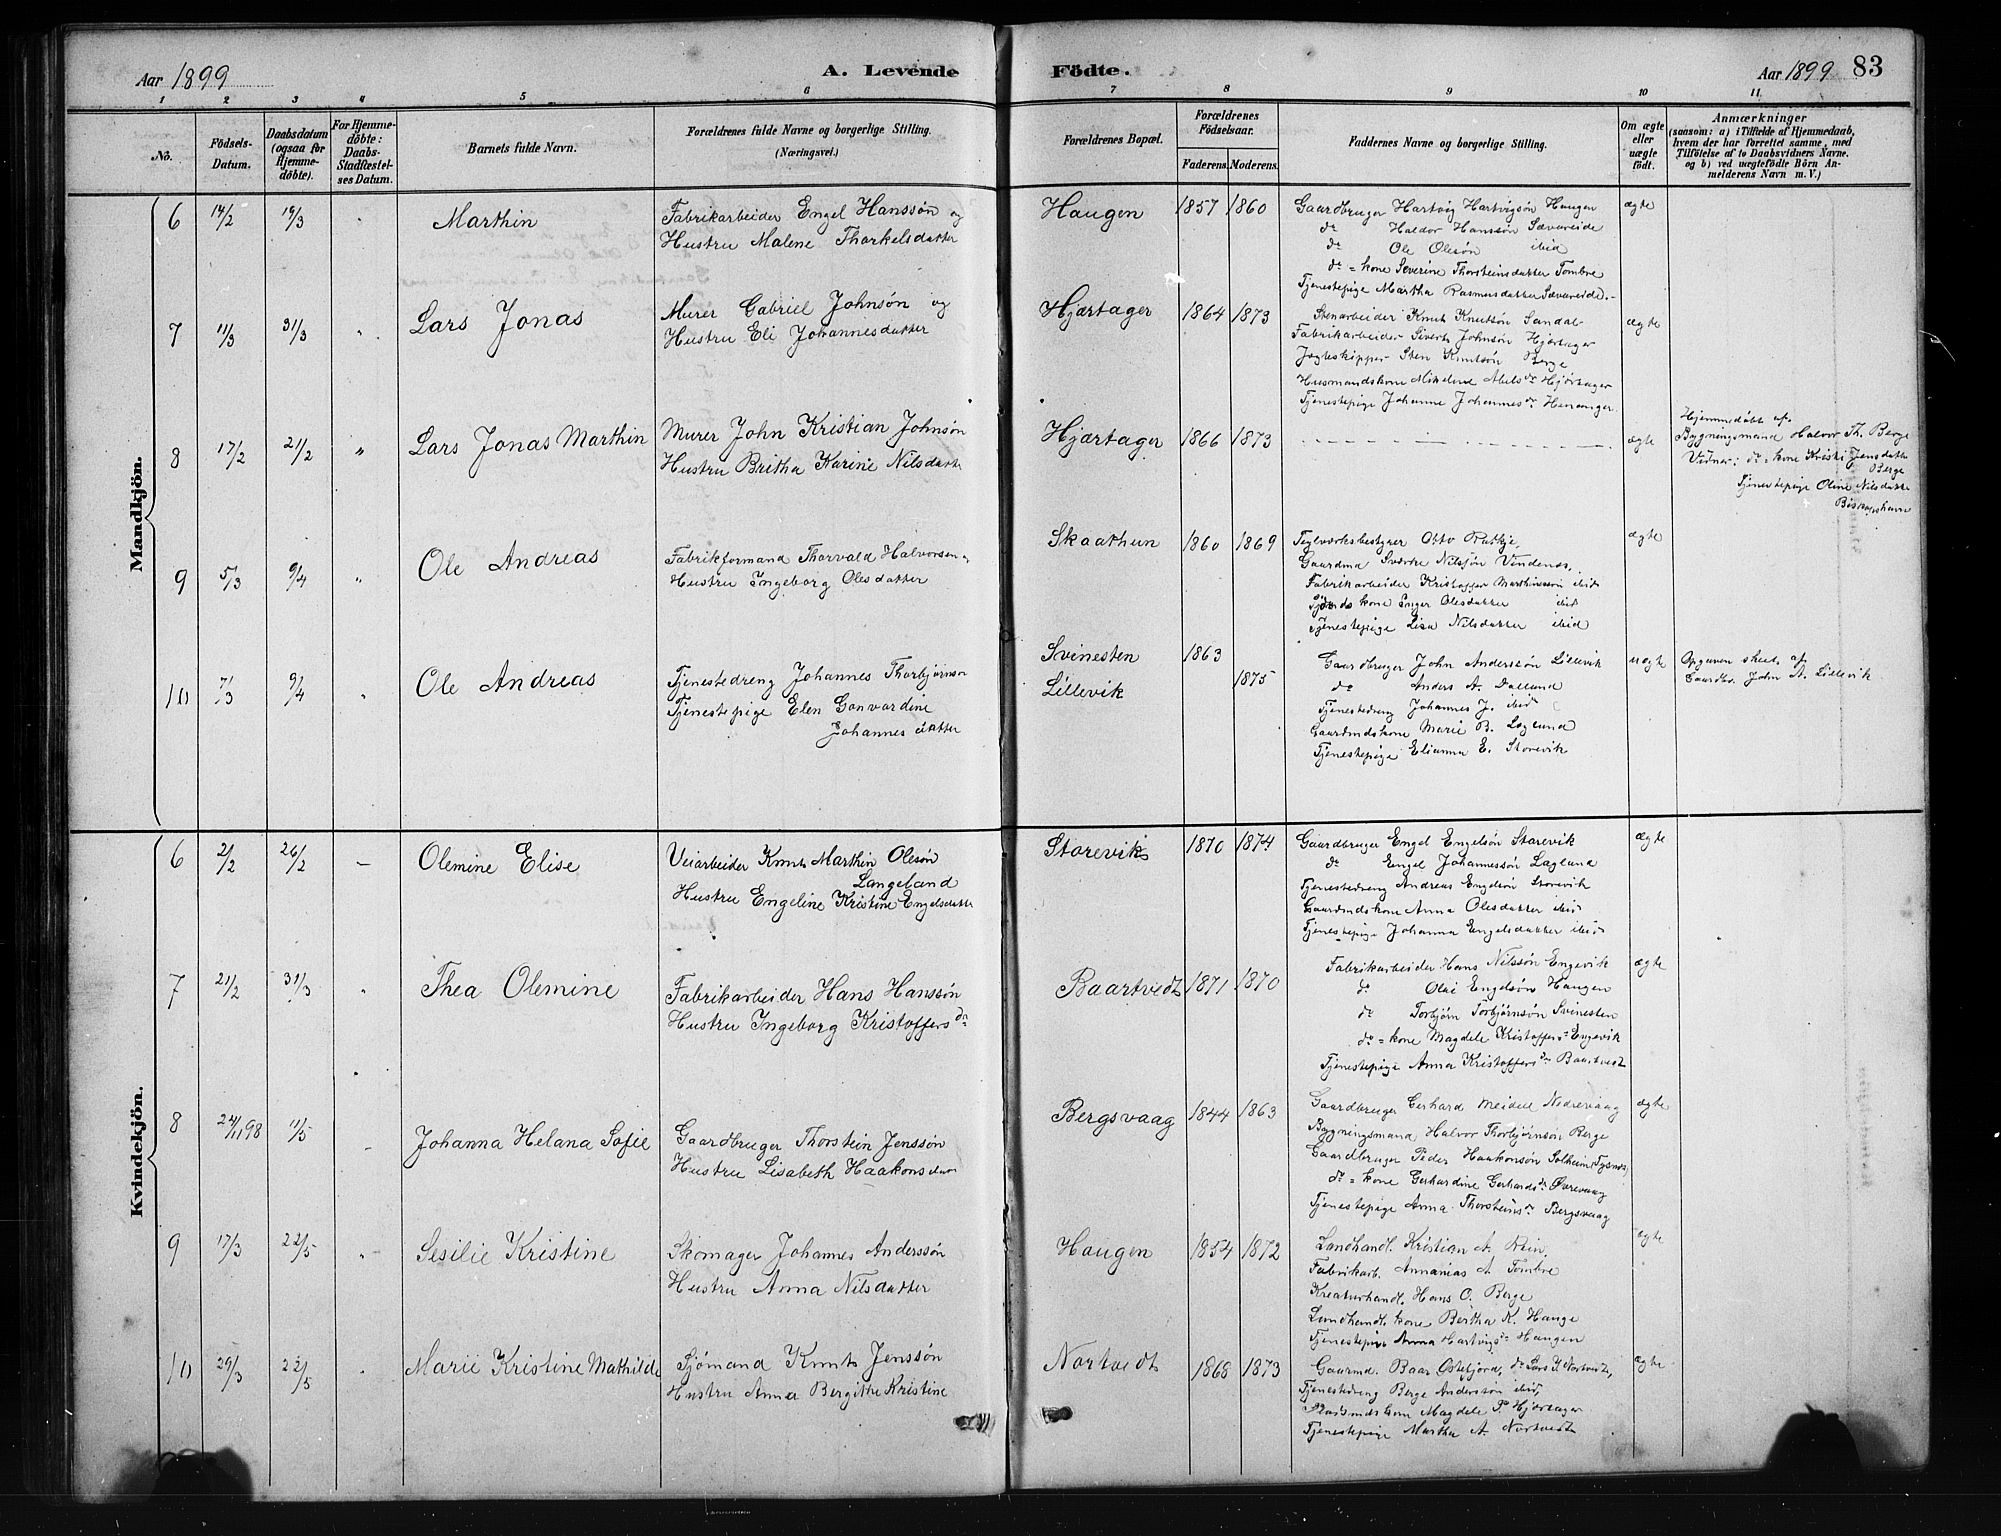 Aar 1899
A. Levende
Födte.
Aar 1899 83
1 2 3 4 5 6 7 8 9 10 11
No.
Födsels-
Datum.
Daabsdatum
(ogsaa for
Hjemme-
döbte).
For Hjemme-
döbte:
Daabs-
Stadfæstel-
ses Datum.
Barnets fulde Navn.
Forældrenes fulde Navne og borgerlige Stilling.
(Næringsvei.)
Forældrenes Bopæl.
Forældrenes
Födselsaar.
Faderens. Moderens.
Faddernes Navne og borgerlige Stilling.
Om ægte
eller
uægte
födt.
Anmærkninger
(saasom: a) i Tilfælde af Hjemmedaab,
hvem der har forrettet samme, med
Tilföielse af to Daabsvidners Navne.
og b) ved uægtefödte Börn An-
melderens Navn m. V.)
Mandkjön.
6 14/2 19/3 " Marthin
Fabrikarbeider Engel Hanssön og
Hustru Malene Thorkelsdatter
Haugen 1857 1860
Gaardbruger Hartvig Hartvigsön Haugen
do Haldor Hanssön Sævareide
do Ole Olesön ibid
do = kone Severine Thorsteinsdatter Tombre
Tjenestepige Martha Rasmusdatter Sævareide.
ægte
7 11/3 31/3 " Lars Jonas
Murer Gabriel Johnsön og
Hustru Eli Johannesdatter
Hjærtager 1864 1873
Stenarbeider Knut Knutsön Sandal
Fabrikarbeider Sivert Johnsön Hjærtager
Jagteskipper Sten Knutsön Berge
Husmandskone Mikeline Abelsdr Hjörtager
Tjenestepige Johanne Johannesdr Henanger
ægte
8 17/2 21/2 " Lars Jonas Marthin
Murer John Kristian Johnsön
Hustru Britha Karine Nilsdatter
Hjærtager 1866 1873
ægte
Hjemmedöbt af
Bygningsmand Halvor Th. Berge
Vidner: do = kone Kristi Jensdatter
Berge
Tjenestepige Oline Nilsdatter
Biskopshavn
9 5/3 9/4 " Ole Andreas
Fabrikformand Thorvald Halvorsen
Hustru Ingeborg Olesdatter
Skaathun 1860 1869
Teglværksbestyrer Otto Rutkje,
Gaardma Sværke Nilsjön Vindenes,
Fabrikarbeider Kristoffer Marthinssön ibid
kone Inger Olesdatter ibid
Tjenestepige Lisa Nilsdatter ibid
ægte
10 7/3 9/4 " Ole Andreas
Tjenestedreng Johannes Thorbjørnsön
Tjenestepige Elen Gonvardine
Johannesdatter
Svinesten 1863
Lillevik 1875
Gaardbruger John Anderssön Lillevik
do Anders A. Dalland
Tjenestedreng Johannes J. ibid
Gaardmdskone Marie B. Laglund
Tjenestepige Elianna E. Storevik
uægte
Opgaven skeet af
Gaardbr. John A. Lillevik
Kvindekjön.
6 2/2 26/2 – Olemine Elise
Veiarbeider Knut Marthin Olesön
Langeland
Hustru Engeline Kristine Engelsdatter
Storevik 1870 1874
Gaardbruger Engel Engelsön Storevik
do Engel Johannessön Laglund
Tjenestedreng Andreas Engelsön Storevik
Gaardmdskone Anna Olesdatter ibid
Tjenestepige Johanna Engelsdatter ibid
ægte
7 21/2 31/3 Thea Olemine
Fabrikarbeider Hans Hanssön
Hustru Ingeborg Kristoffersdr
Baartvedt 1871 1870
Fabrikarbeider Hans Nilssön Engevik
do Olai Engelsön Haugen
do Torbjörn Torbjörnsön Svinesten
do = kone Magdele Kristoffersdr Engevik
Tjenestepige Anna Kristoffersdr Baartvedt
ægte
8 24/11 98 11/5 – Johanna Helana Sofie
Gaardbruger Thorstein Jenssön
Hustru Lisabeth Haakonsdatter
Bergsvaag 1844 1863
Gaardbruger Gerhard Meidell Nedrevaag
Bygningsmand Halvor Thorbjörnsön Berge
Gaardbruger Peder Haakonsön Solheim, Tysnes,
do = kone Gerhardine Gerhardsdr Övrevaag
Tjenestepige Anna Thorsteinsdr Bergsvaag
ægte
9 17/3 22/5 " Sesilie Kristine
Skomager Johannes Anderssön
Hustru Anna Nilsdatter
Haugen 1854 1872
Landhandl. Kristian A. Rein,
Fabrikarb. Annanias A. Tombre
Kreaturhandl. Hans O. Berge
Landhandl. kone Bertha K. Hauge
Tjenestepige Anna Hartvigsdr Haugen
ægte
10 29/3 22/5 Marie Kristine Mathilde
Sjömand Knut Jenssön
Hustru Anna Bergithe Kristine
Nortvedt 1868 1873
Gaarmd. Baar Östefjord, do Lars K. Nortvedt,
Tjenestedreng Berge Anderssön ibid,
Pladsmdskone Magdele P. Hjörtager
Tjenestepige Martha A. Nortvedt
ægte